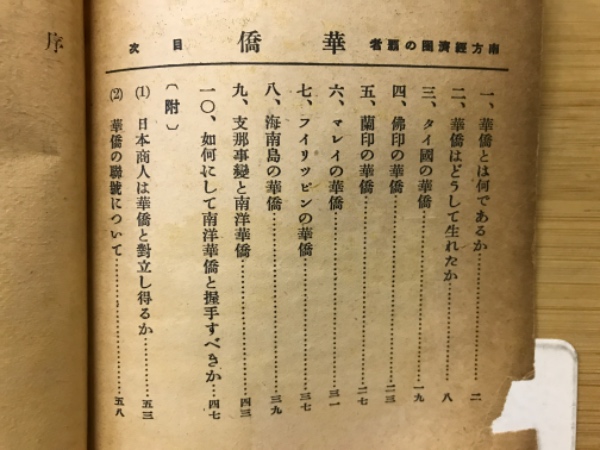 南方經濟圈の覇者 華僑 目次
一、華僑とは何であるか…………二
二、華僑はどうして生れたか…………八
三、タイ國の華僑…………一九
四、佛印の華僑…………二三
五、蘭印の華僑…………二七
六、マレイの華僑…………三一
七、フイリツピンの華僑…………三七
八、海南島の華僑…………三九
九、支那事變と南洋華僑…………四三
一〇、如何にして南洋華僑と握手すべきか…四七
〔附〕
(1) 日本商人は華僑と對立し得るか…………五三
(2) 華僑の聯號について…………五八
序